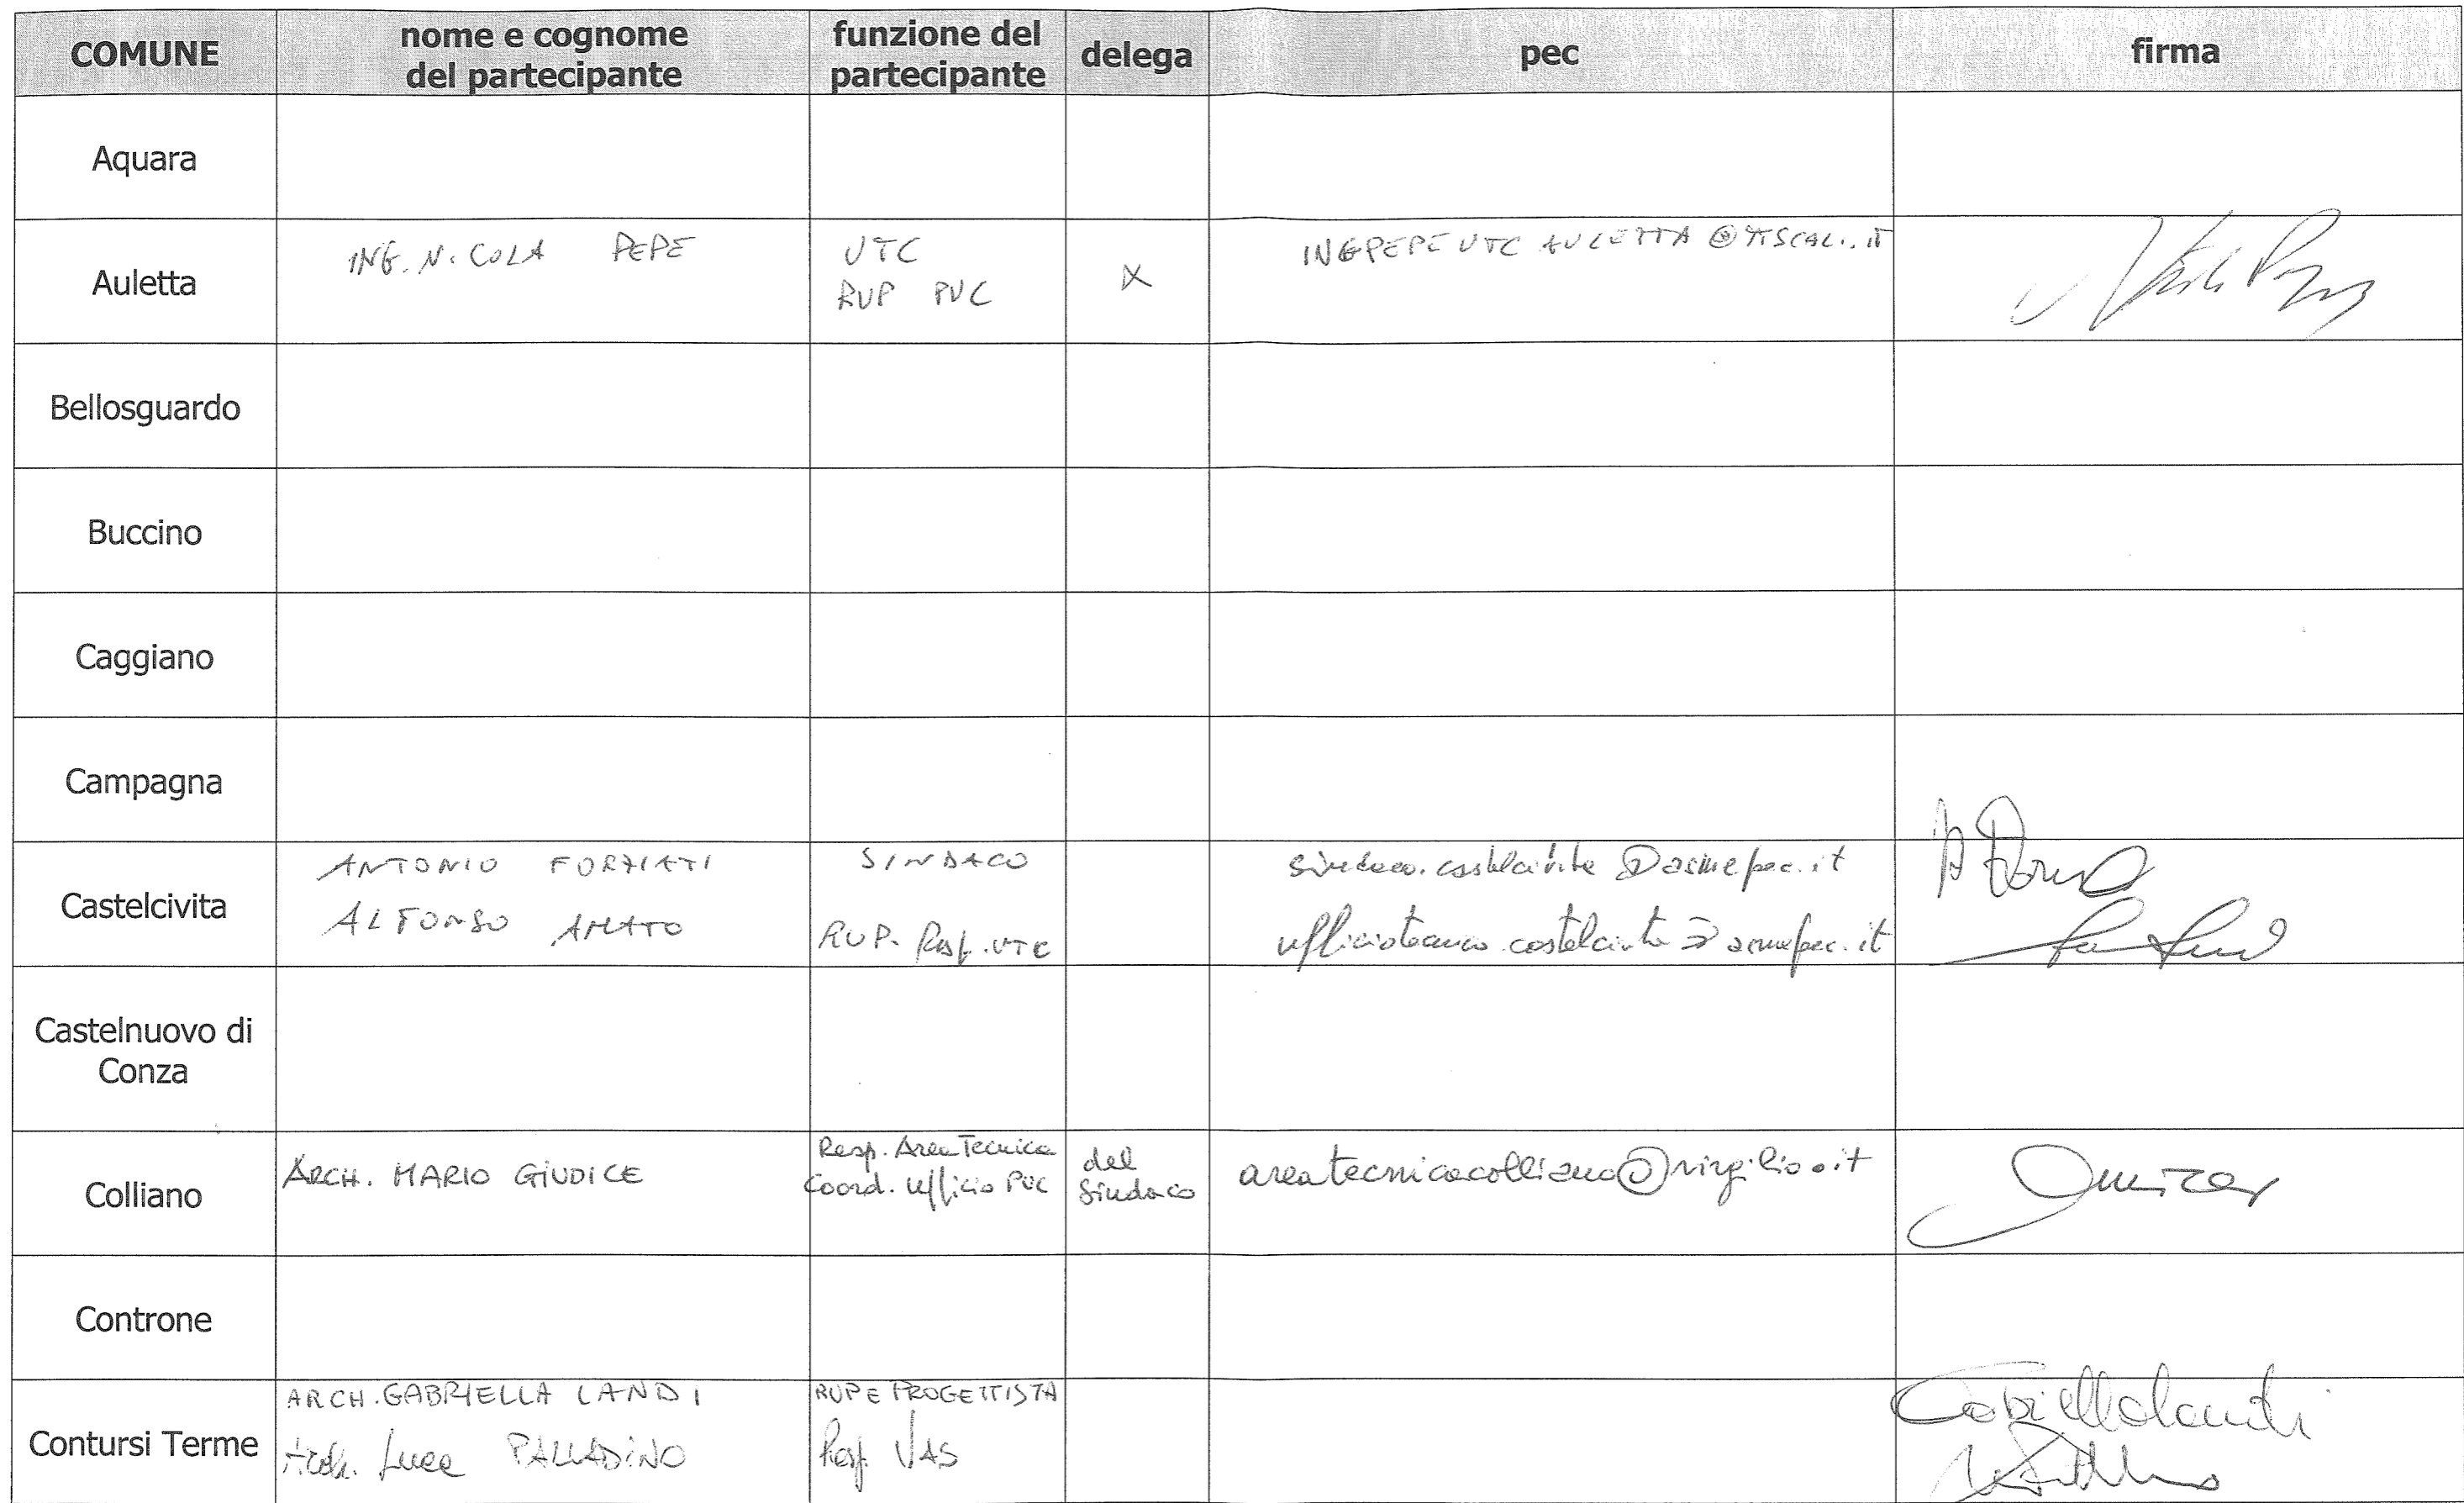 COMUNE
nome e cognome
del partecipante
funzione del
partecipante
delega
pec
firma
Aquara
Auletta
ING. NICOLA PEPE
UTC
RUP PUC
X
INGPEPEUTCAULETTA@TISCALI.IT
Bellosguardo
Buccino
Caggiano
Campagna
Castelcivita
ANTONIO FORZIATI
SINDACO
sindaco.castelcivita@asmepec.it
ALFONSO AMATO
RUP. Resp. UTC
ufficiotecnico.castelcivita@asmepec.it
Castelnuovo di
Conza
Colliano
ARCH. MARIO GIUDICE
Resp. Area Tecnica
Coord. Ufficio PUC
del
Sindaco
areatecnicacolliano@virgilio.it
Controne
Contursi Terme
ARCH. GABRIELLA LANDI
RUP E PROGETTISTA
Gabriella Landi
Arch. Luca PALLADINO
Resp. VAS